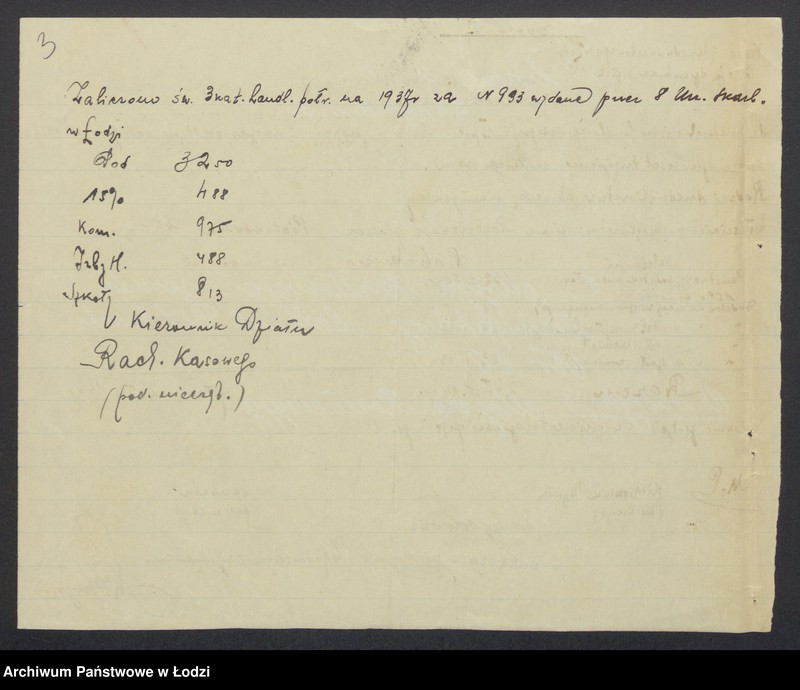 3
Zaliczono św. 3 kat. handl. półr. na 1937 r za № 993 wydane przez 8 Urz. Skarb.
w Łodzi
Pod 32 50
15% 4 88
Kom. 9 75
Izby H. 4 88
Szkoły 8 13
Kierownik Działu
Rach. Kasowego
(pod. nieczyt.)
Archiwum Państwowe w Łodzi